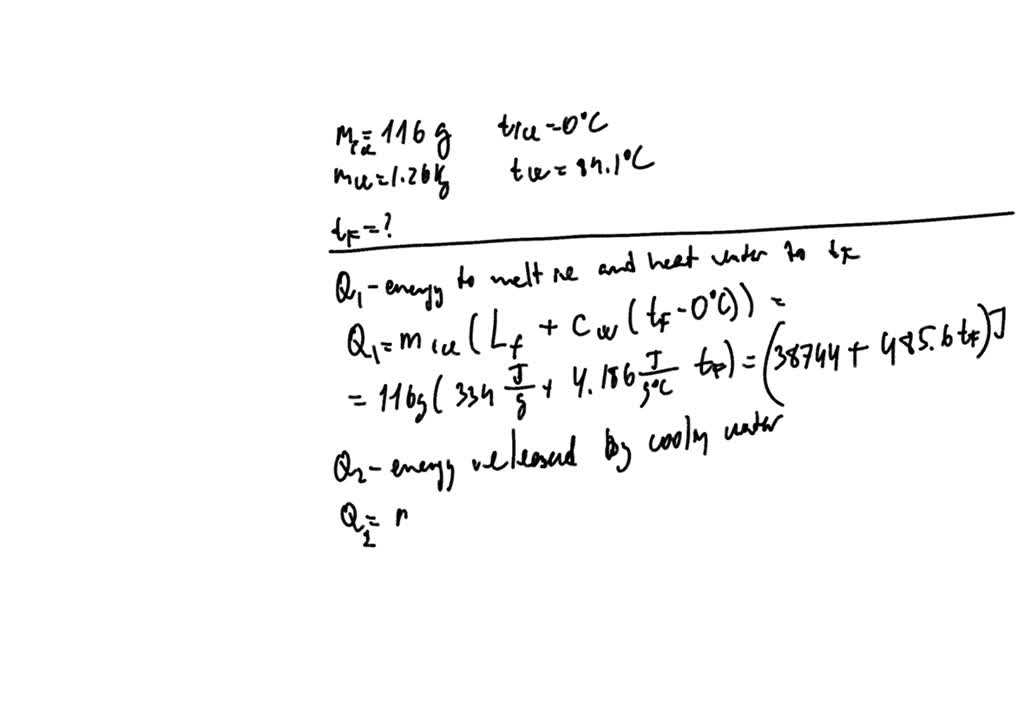 m_ice = 116 g t_ice = 0°C
m_w = 1.26 kg t_w = 84.1°C
t_F = ?
Q₁ - energy to melt ice and heat water to t_F
Q₁ = m_ice ( L_f + c_w ( t_F - 0°C)) =
= 116g ( 334 J/g + 4.186 J/g°C t_F) = (38744 + 485.6 t_F) J
Q₂ - energy released by cooly water
Q₂ =